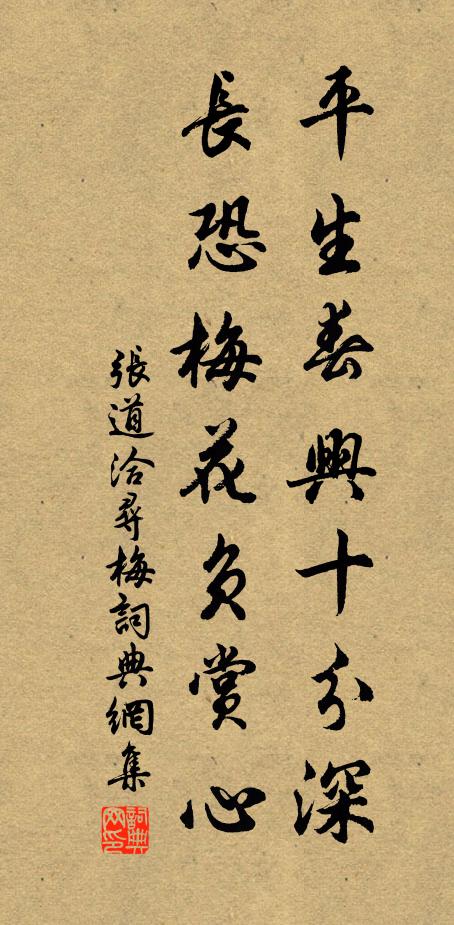 平生春興十分深
長恐梅花負賞心
張道洽尋梅詞典網集
詞典網印